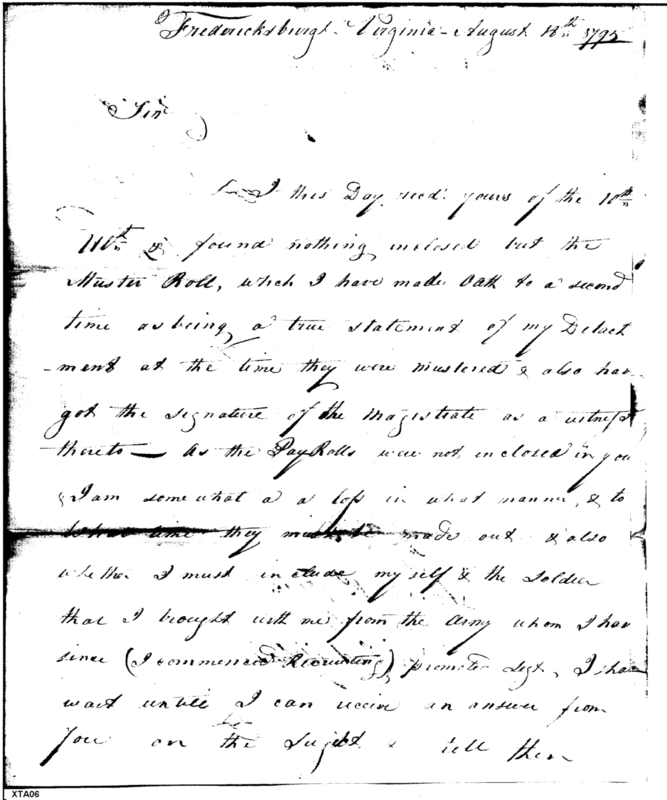 Fredericksburgh - Virginia - August 18th 1795
Sir
I this Day recd. yours of the 10th
& found nothing inclosed but the
Muster Roll, which I have made Oath to a second
time as being a true statement of my Detach
-ment at the time they were mustered & also hav
got the signature of the magistrate as a witness
thereto — As the Pay Rolls were not inclosed in you
I am somewhat a a loss in what manner, & to
What time they must be made out & also
whether I must include myself & the Soldier
that I brought with me from the Army whom I hav
since (I commenced Recruiting) promoted Sgt, I
wait untill I can receive an answer from
you on the Sujbt & till then
XTA06